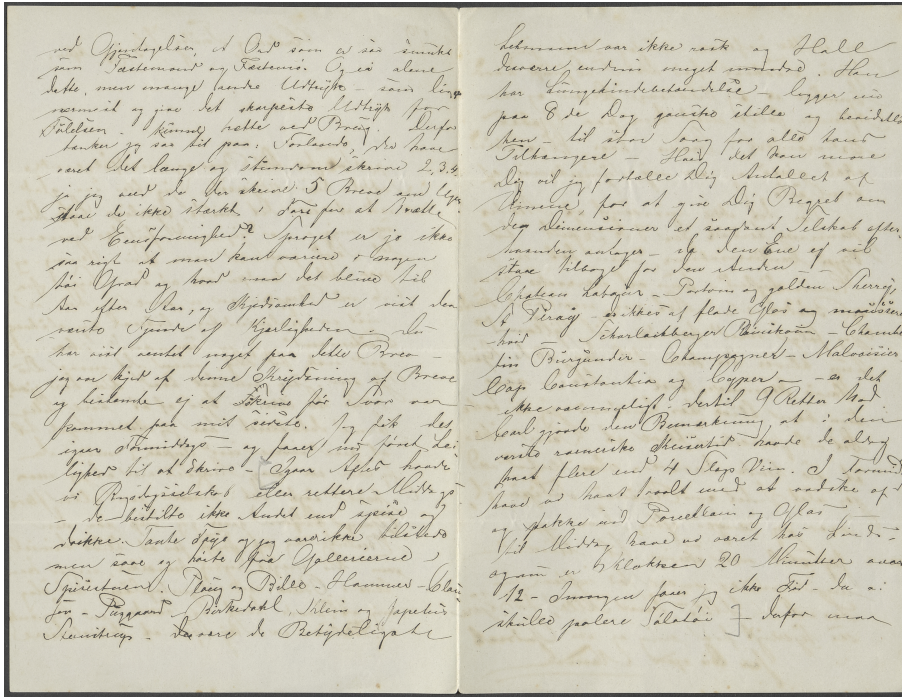 ved Gjendagelsen, et Ord som er saa smukt
som Fæstemand og Fæstemø. Og ei alene
dette, men mange andre Udtryk - som
nemmeit og give det skarpeste Udtryk for
Følelsen. kunne rette ved Brevg. Derfor
tænker jeg saa tit paa: Forlovede, der have
været det længe og stundom skrive 2, 3, 4,
ja jeg veed de der skrive 5 Breve om Ugen
staae de ikke stærkt i Fare for at
ved Eensformighed? Sproget er jo ikke
saa rigt at man kan variere i nogen
høi Grad og hvad maa det blive til
Aar efter Aar, og Kjedsomhed er vist den
værste Fjende af Kjærligheden. Du
har vist ventet noget paa dette Brev -
jeg var kjed af denne Krydsning af Breve
og besluttede ej at skrive før Svar var
kommet paa mit sidste. Jeg fik det
igaar Formiddags - og faaer nu først Lei
lighed til at skrive - Igaar Aftes havde
vi Rigsdagsselskab eller rettere Middags
- de bestilte ikke Andet end spise og
drikke. Tante Frije og jeg vare ikke tilstede
men saae og hørte fra Gallerierne
Ploug og Bille - Hammer - Clau
sen - Puggaard - Birkedahl, Klein og Japetus
Steenstrup. Det vare de Betydeligste
var ikke rask og Hall
desværre endnu meget mindre. Han
har Lungehindebetændelse - ligger nu
paa 8de Dag ganske stille og
hen - til stor Sorg for alle hans
Tilhængere - Hvis det kan more
Dig vil jeg fortælle Dig Antallet af
Vinene, for at give Dig Begreb om
de Dimensioner et saadant Selskab efter-
haanden antager - da den Ene ej vil
staae tilbage for den Anden -
Chateau Latour - Portvin og golden Sherry,
St Peray - drikkes af flade Glas og
hvid - Scharlachberger Rhinskvin - Chamber
tin Burgunder - Champagne - Malvoisier
Cap Constantia og Cyper - - er det
ikke vanvittigt, dertil 9 Retter Mad
Carl gjorde den Bemærkning, at i den
værste romerske Keisertid havde de aldrig
havt flere end 4 Slags Vin. I Formid
have vi havt travlt med at vadske af
og pakke ned Porcellain og Glas -
til Middag have vi været hos
og nu er Klokken 20 Minutter over
12 - Imorgen faaer jeg ikke Tid - da vi
skulle polere Sølvtøi - derfor maa